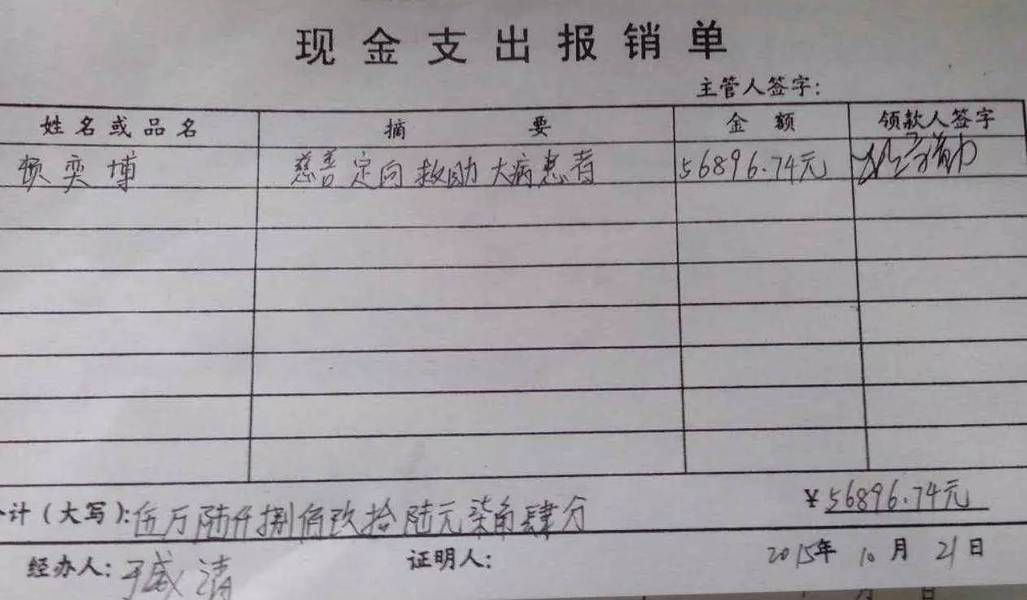 现金支出报销单
主管人签字:
姓名或品名 摘要 金额 领款人签字
顿奕博 慈善定向救助大病患者 56896.74元
计(大写): 伍万陆仟捌佰玖拾陆元柒角肆分 ¥56896.74元
经办人: 证明人: 2015年10月21日